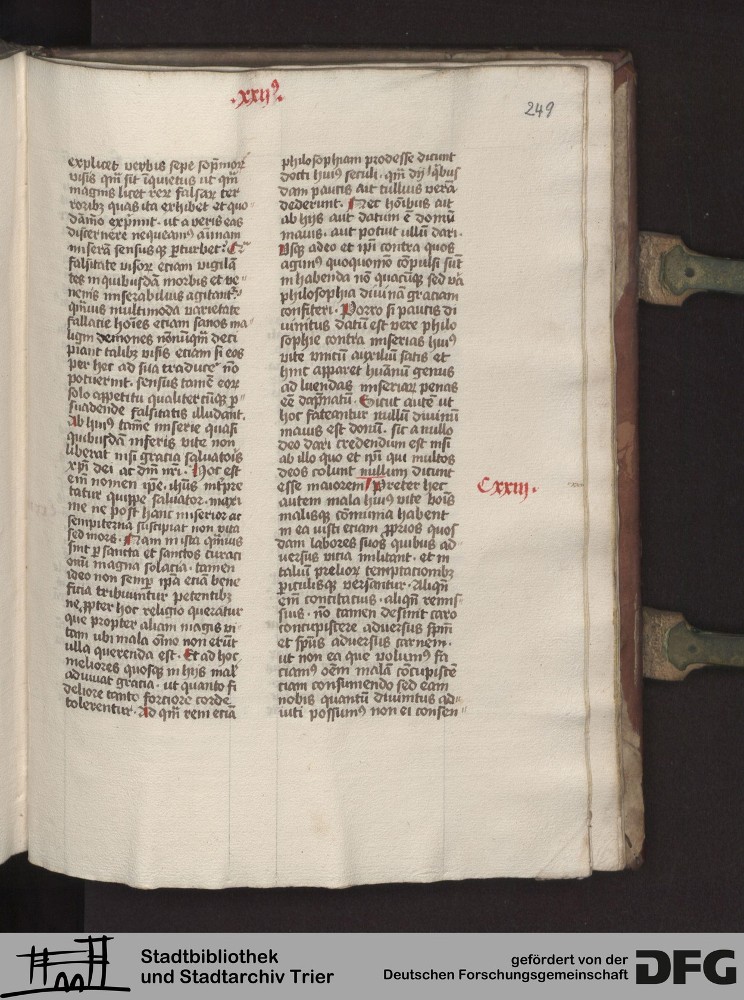 .xxijꝰ.
249
explicet verbis sepe sopn̄ioꝝ
visis qm̄ sit īquietus ut qm̄
magnis licet reꝝ falsaꝝ ter
roribꝫ quas ita exhibet et quo
dāmō exp̄mit. ut a veris eas
discernere nequeamꝰ aīmam
miserā sensusqꝫ ꝑturbet.
falsitate visoꝝ etiam vigilā
tes in quibusdā morbis et ve
nenis miserabilius agitantᷣ
qm̄uis multimoda varietate
fallacie hoīes etiam sanos ma
ligni demones nōnūqm̄ deci
piant talibꝫ visis etiam si eos
per hec ad sua traduce͛ nō
potuerint. sensus tamē eoꝝ
solo appetitu qualitercūqꝫ ꝑ
suadende falsitatis illudant.
Ab huiꝰ tame miserie quasi
quibusdā inferis vite non
liberat nisi gracia saluatoris
xp̄i dei ac dn̄i nr̄i. Hoc est
em̄ nomen ip̄e. ihūs intp̄re
tatur quippe saluator. maxi
me ne post hanc miserior ac
sempiterna suscipiat non vita
sed mors. Nam in ista qm̄uis
sint ꝑ sancta et sanctos curaci
onū magna solacia. tamen
ideo non semꝑ ip̄a eciā bene
ficia tribuuntur petentibꝫ
ne ꝓpter hoc religio queratur
que propter aliam magis vi
tam ubi mala oīno non erūt
ulla querenda est. Et ad hoc
meliores quosqꝫ in hijs mal͛
adiuuat gracia. ut quanto fi
deliore tanto forciore corde
tolerentur. Ad qm̄ rem eciā
philosophiam prodesse dicunt
docti huiꝰ seculi. qm̄ dij q̇bus
dam paucis ait tullius verā
dederunt. Nec hoībus ait
ab hijs aut datum ē donū
maius. aut potuit ullū dari.
Vsqꝫ adeo et ip̄i contra quos
agimꝰ quoquomō cōpulsi sūt
in habenda nō quacūqꝫ sed vā
philosophia diuinā graciam
confiteri. Porro si paucis di
uinitus datū est vere philo
sophie contra miserias huiꝰ
vite vnicū auxiliū satis et
hinc apparet huānū genus
ad luendas miseriaꝝ penas
eē dāpnatū. Sicut autē ut
hoc fateantur nullū diuinū
maius est donū. sic a nullo
deo dari credendum est nisi
ab illo quo et ip̄i qui multos
deos colunt nullum dicunt
esse maiorem Preter hec
Cxxiij.
autem mala huiꝰ vite bonis
malisqꝫ cōmunia habent
in ea iusti eciam ꝓprios quos
dam labores suos quibus ad
uersus vicia militant. et in
taliū prelioꝝ temptacionibꝫ
ꝑiculisqꝫ versantur. Aliqn̄
em̄ concitacius. aliqn̄ remis
sius. nō tamen desinit caro
concupiscere aduersus sp̄m̄
et sp̄us aduersus carnem.
ut non ea que volumꝰ fa
ciamꝰ oēm malā cōcupiscē
ciam consumendo sed eam
nobis quantū diuinitus ad
iuti possumꝰ non ei consen
Stadtbibliothek
und Stadtarchiv Trier
gefördert von der
Deutschen Forschungsgemeinschaft
DFG